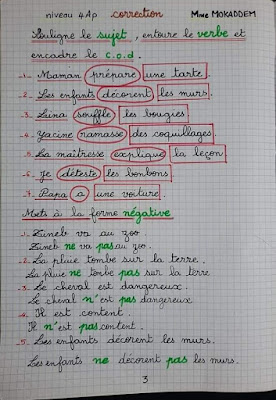 niveau 4 Ap correction Mme MOKADDEM
Souligne le sujet, entoure le verbe et
encadre le c.o.d.
1. Maman prépare une tarte.
2. Les enfants décorent les murs.
3. Lina souffle les bougies
4. Yacine ramasse des coquillages.
5. La maîtresse explique la leçon
6. Je déteste les bonbons
7. Papa a une voiture.
Mets à la forme négative
1. Zineb va au zoo.
Zineb ne va pas au zoo.
2. La pluie tombe sur la terre.
La pluie ne tombe pas sur la terre
3. Le cheval est dangereux.
Le cheval n'est pas dangereux
4. Il est content.
Il n'est pas content.
5. Les enfants décorent les murs.
Les enfants ne décorent pas les murs.
3